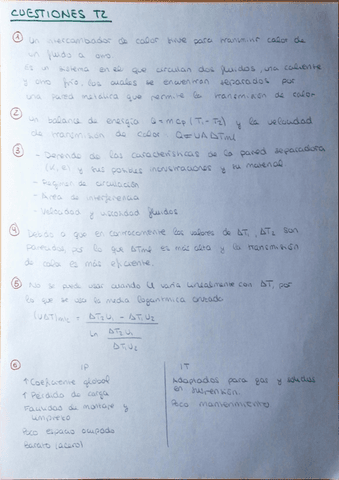 CUESTIONES T2
① Un intercambiador de calor sirve para transmitir calor de
un fluido a otro.
Es un sistema en el que circulan dos fluidos, uno caliente
y otro frío, los cuales se encuentran separados por
una pared metálica que permite la transmisión de calor
② Un balance de energía Q = m cp (T1 - T2) y la velocidad
de transmisión de calor Q = UAΔTml
③ - Depende de las características de la pared separadora
y sus posibles incrustaciones y su material
- Régimen de circulación
- Área de
- Velocidad y viscosidad fluidos
④ Debido a que en contracorriente los valores de ΔT1, ΔT2 son
por lo que ΔTml es más alta y la transmisión
de calor es más eficiente.
⑤ No se puede usar cuando U varía linealmente con ΔT, por
lo que se usa la media logarítmica cruzada
(UΔT)mlc = ΔT2 U1 - ΔT1 U2
ln ΔT2 U1
ΔT1 U2
⑥ IP IT
↑ Coeficiente global Adaptados para gas y sólidos
↑ Pérdida de carga en suspensión.
Facilidad de montaje y Poco mantenimiento
limpieza
Poco espacio ocupado
Barato (acero)